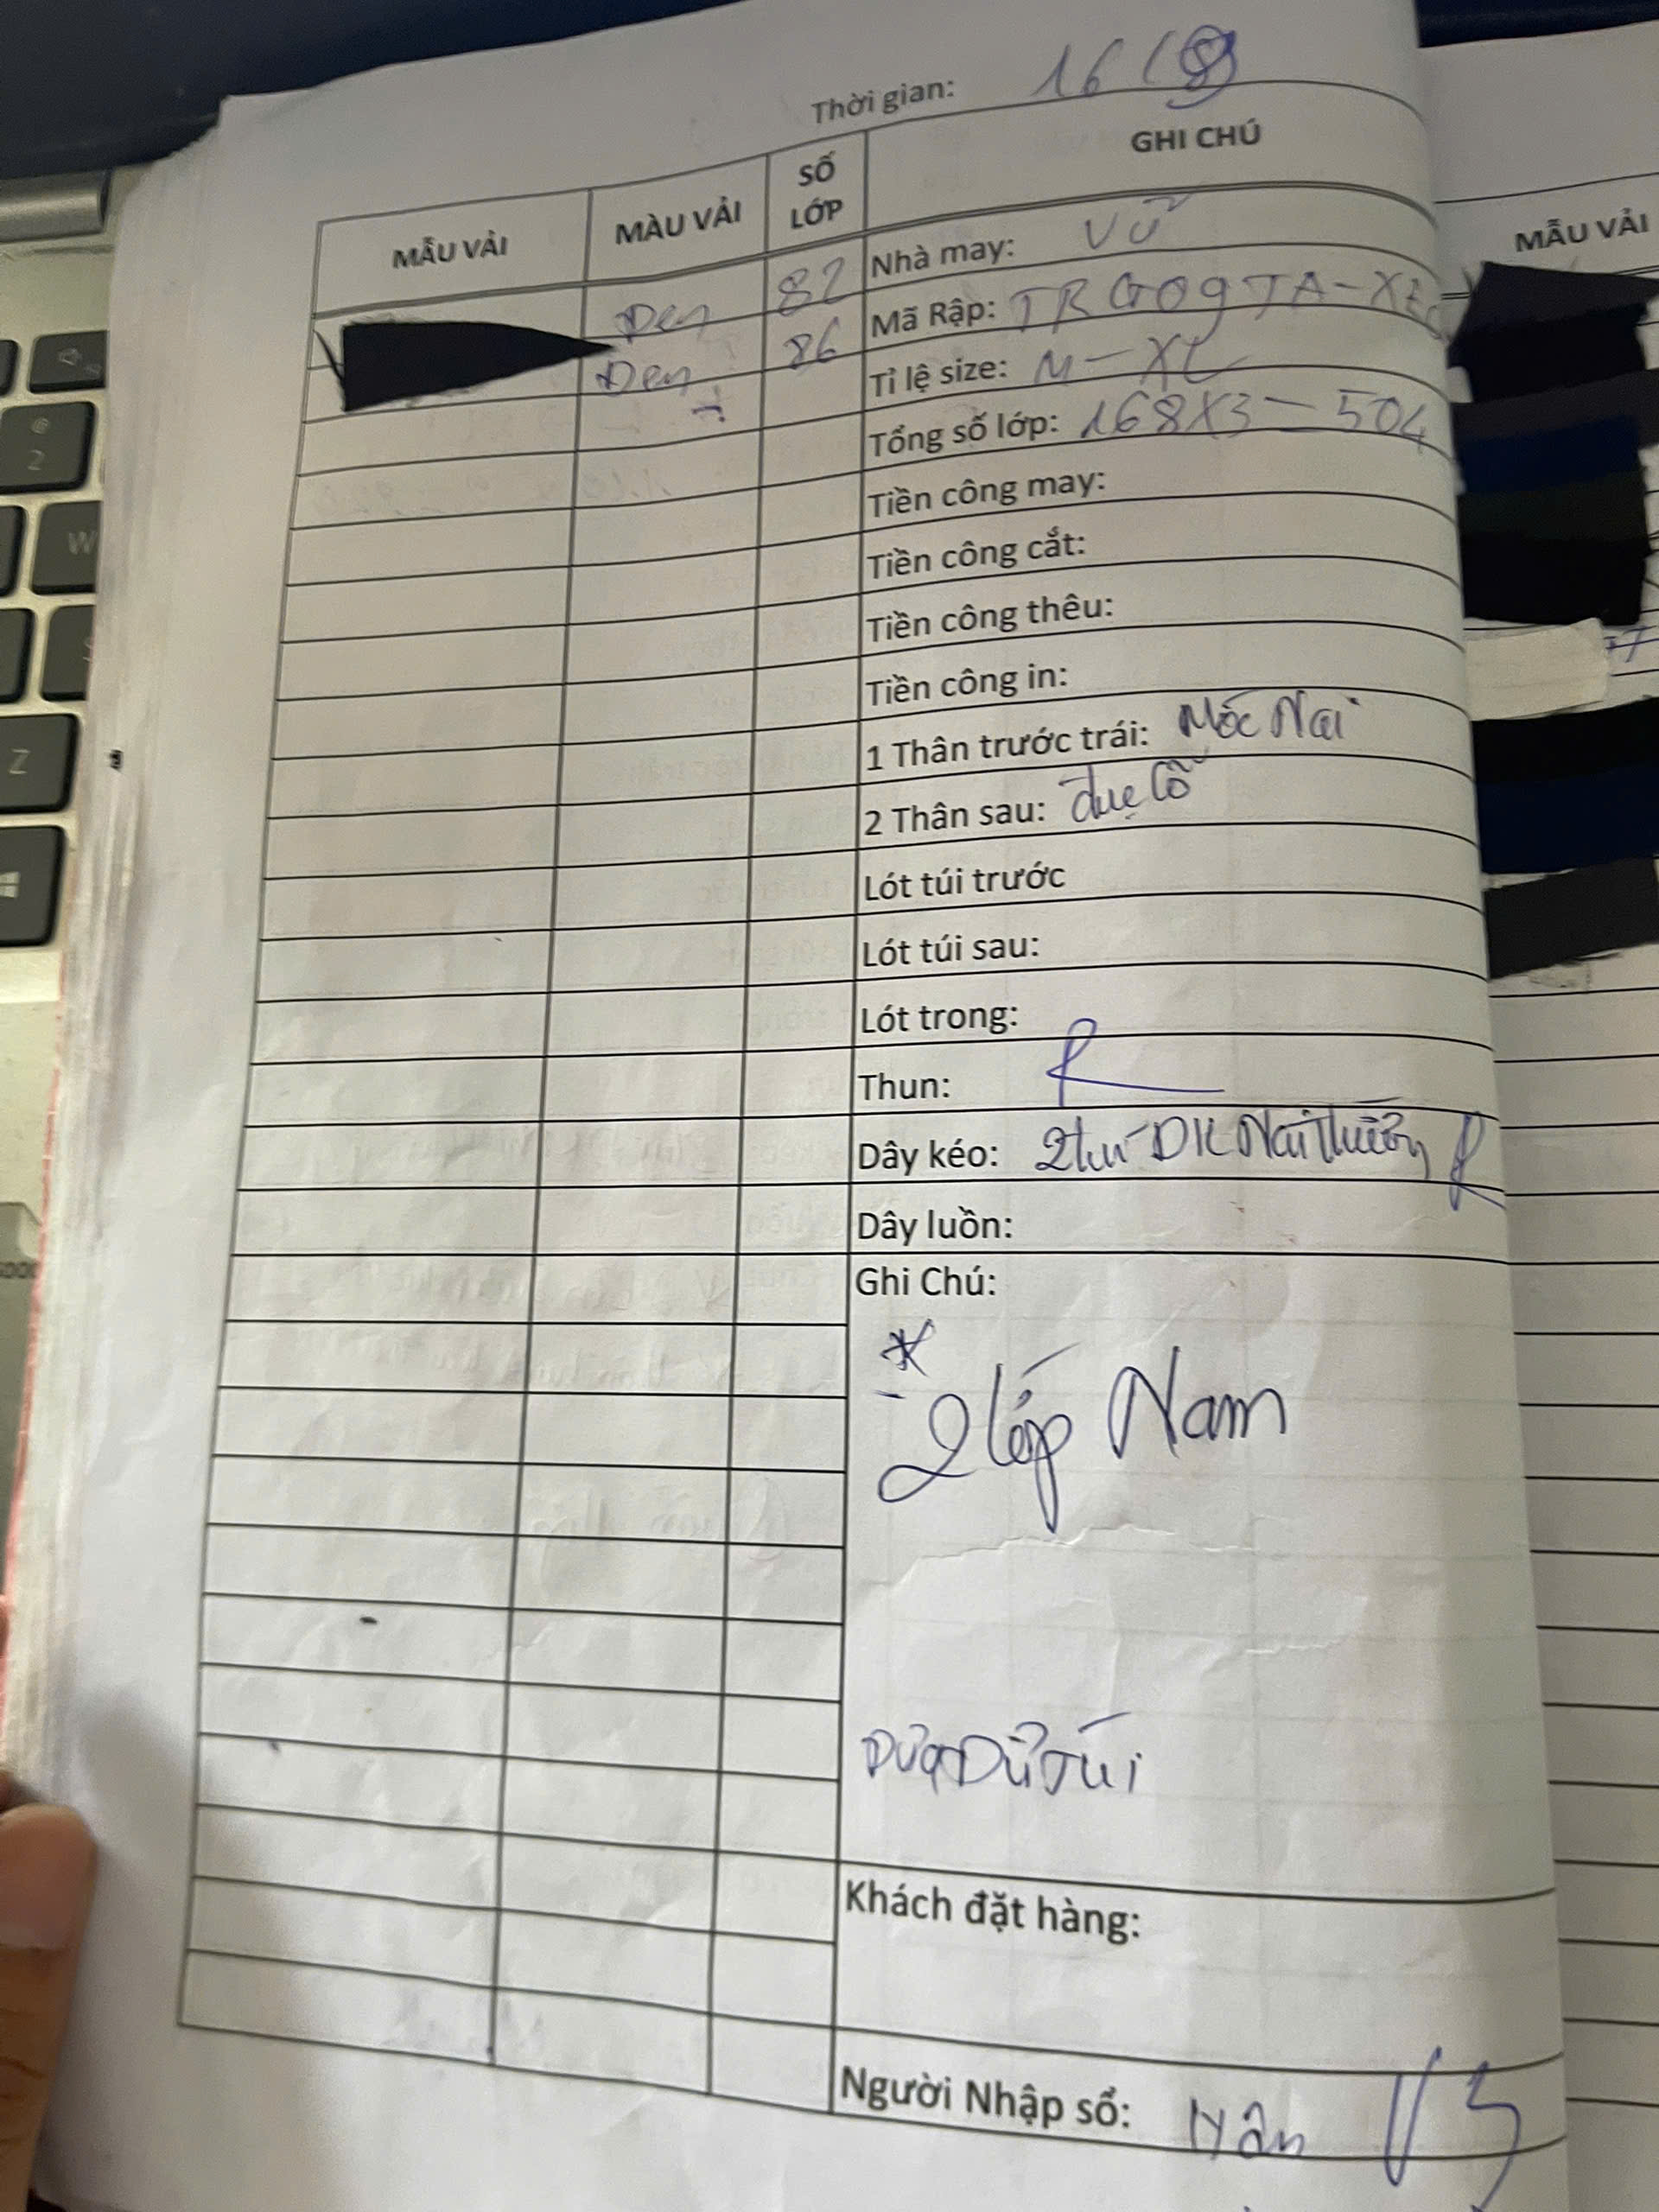 Thời gian: 16/8
MẪU VẢI MÀU VẢI SỐ LỚP GHI CHÚ
Đen 82 Nhà may: Vũ
Đen 86 Mã Rập: TRG09TA-XE
Tỉ lệ size: M-XL
Tổng số lớp: 168x3=504
Tiền công may:
Tiền công cắt:
Tiền công thêu:
Tiền công in:
1 Thân trước trái: Mốc Nai
2 Thân sau: đục lỗ
Lót túi trước
Lót túi sau:
Lót trong:
Thun:
Dây kéo: DK Nai
Dây luồn:
Ghi Chú:
* 2 lớp Nam
Đưa Dư Túi
Khách đặt hàng:
Người Nhập sổ: Hân
MẪU VẢI